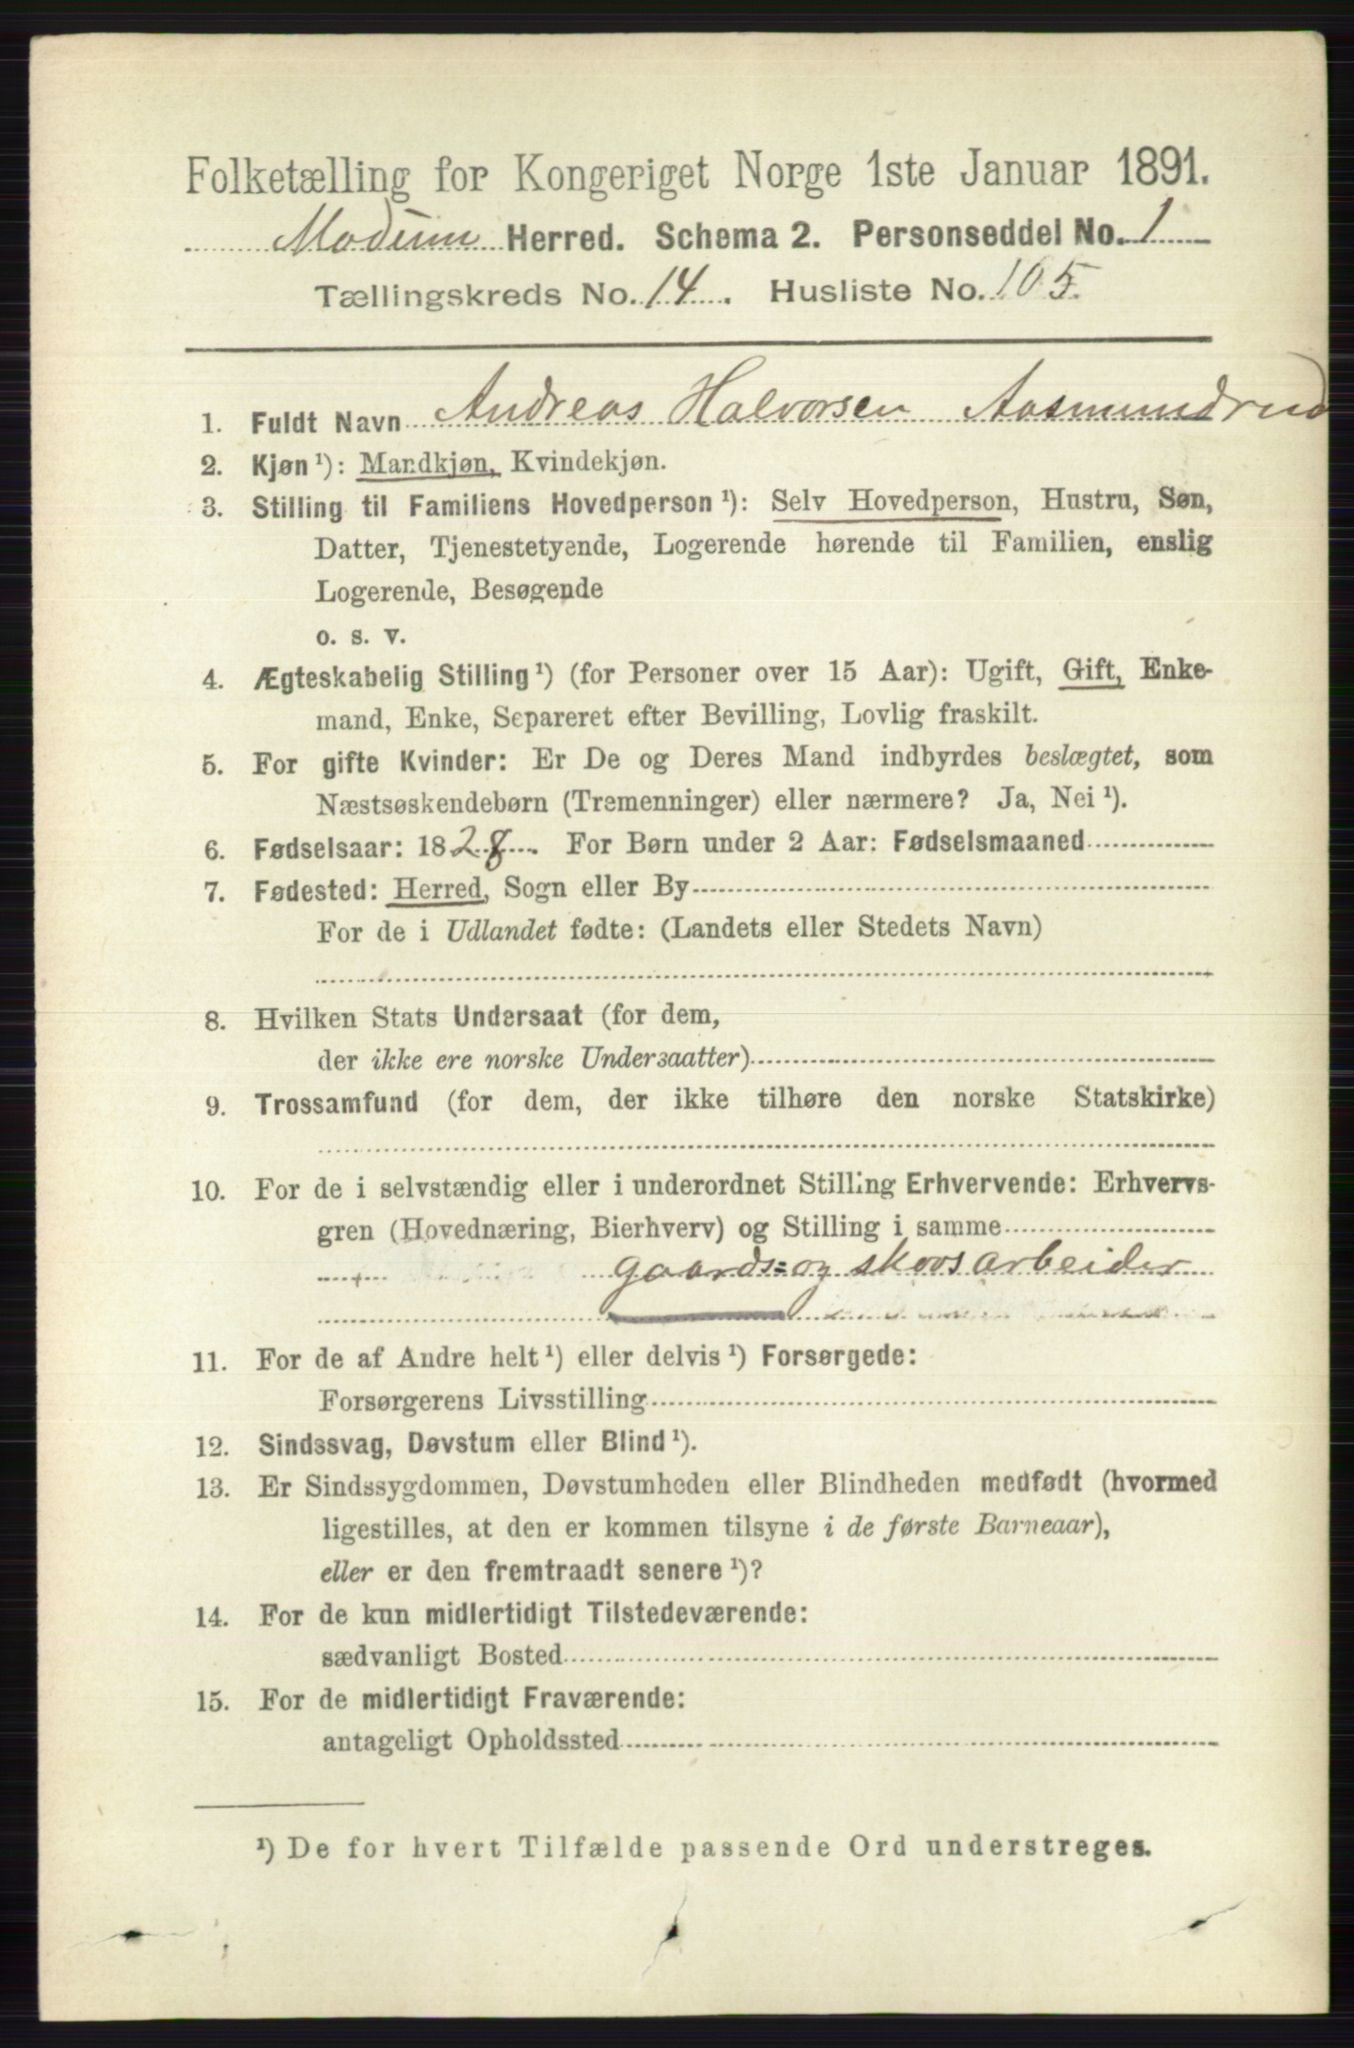 Folketælling for Kongeriget Norge 1ste Januar 1891.
Modum Herred. Schema 2. Personseddel No. 1
Tællingskreds No. 14. Husliste No. 105.
1. Fuldt Navn Andreas Halvorsen Aasmundrud
2. Kjøn ¹): Mandkjøn, Kvindekjøn.
3. Stilling til Familiens Hovedperson ¹): Selv Hovedperson, Hustru, Søn,
Datter, Tjenestetyende, Logerende hørende til Familien, enslig
Logerende, Besøgende
o. s. v.
4. Ægteskabelig Stilling ¹) (for Personer over 15 Aar): Ugift, Gift, Enke-
mand, Enke, Separeret efter Bevilling, Lovlig fraskilt.
5. For gifte Kvinder: Er De og Deres Mand indbyrdes beslægtet, som
Næstsøskendebørn (Tremenninger) eller nærmere? Ja, Nei ¹).
6. Fødselsaar: 1828. For Børn under 2 Aar: Fødselsmaaned
7. Fødested: Herred, Sogn eller By
For de i Udlandet fødte: (Landets eller Stedets Navn)
8. Hvilken Stats Undersaat (for dem,
der ikke ere norske Undersaatter)
9. Trossamfund (for dem, der ikke tilhøre den norske Statskirke)
10. For de i selvstændig eller i underordnet Stilling Erhvervende: Erhvervs-
gren (Hovednæring, Bierhverv) og Stilling i samme
gaards= og skovsarbeider
11. For de af Andre helt ¹) eller delvis ¹) Forsørgede:
Forsørgerens Livsstilling
12. Sindssvag, Døvstum eller Blind ¹).
13. Er Sindssygdommen, Døvstumheden eller Blindheden medfødt (hvormed
ligestilles, at den er kommen tilsyne i de første Barneaar),
eller er den fremtraadt senere ¹)?
14. For de kun midlertidigt Tilstedeværende:
sædvanligt Bosted
15. For de midlertidigt Fraværende:
antageligt Opholdssted
¹) De for hvert Tilfælde passende Ord understreges.